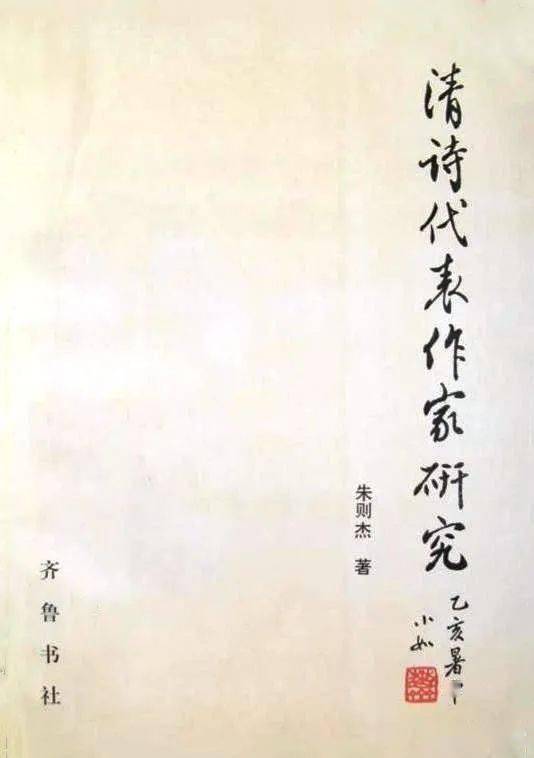 清诗代表作家研究
乙亥暑
小如
朱则杰 著
齐鲁书社